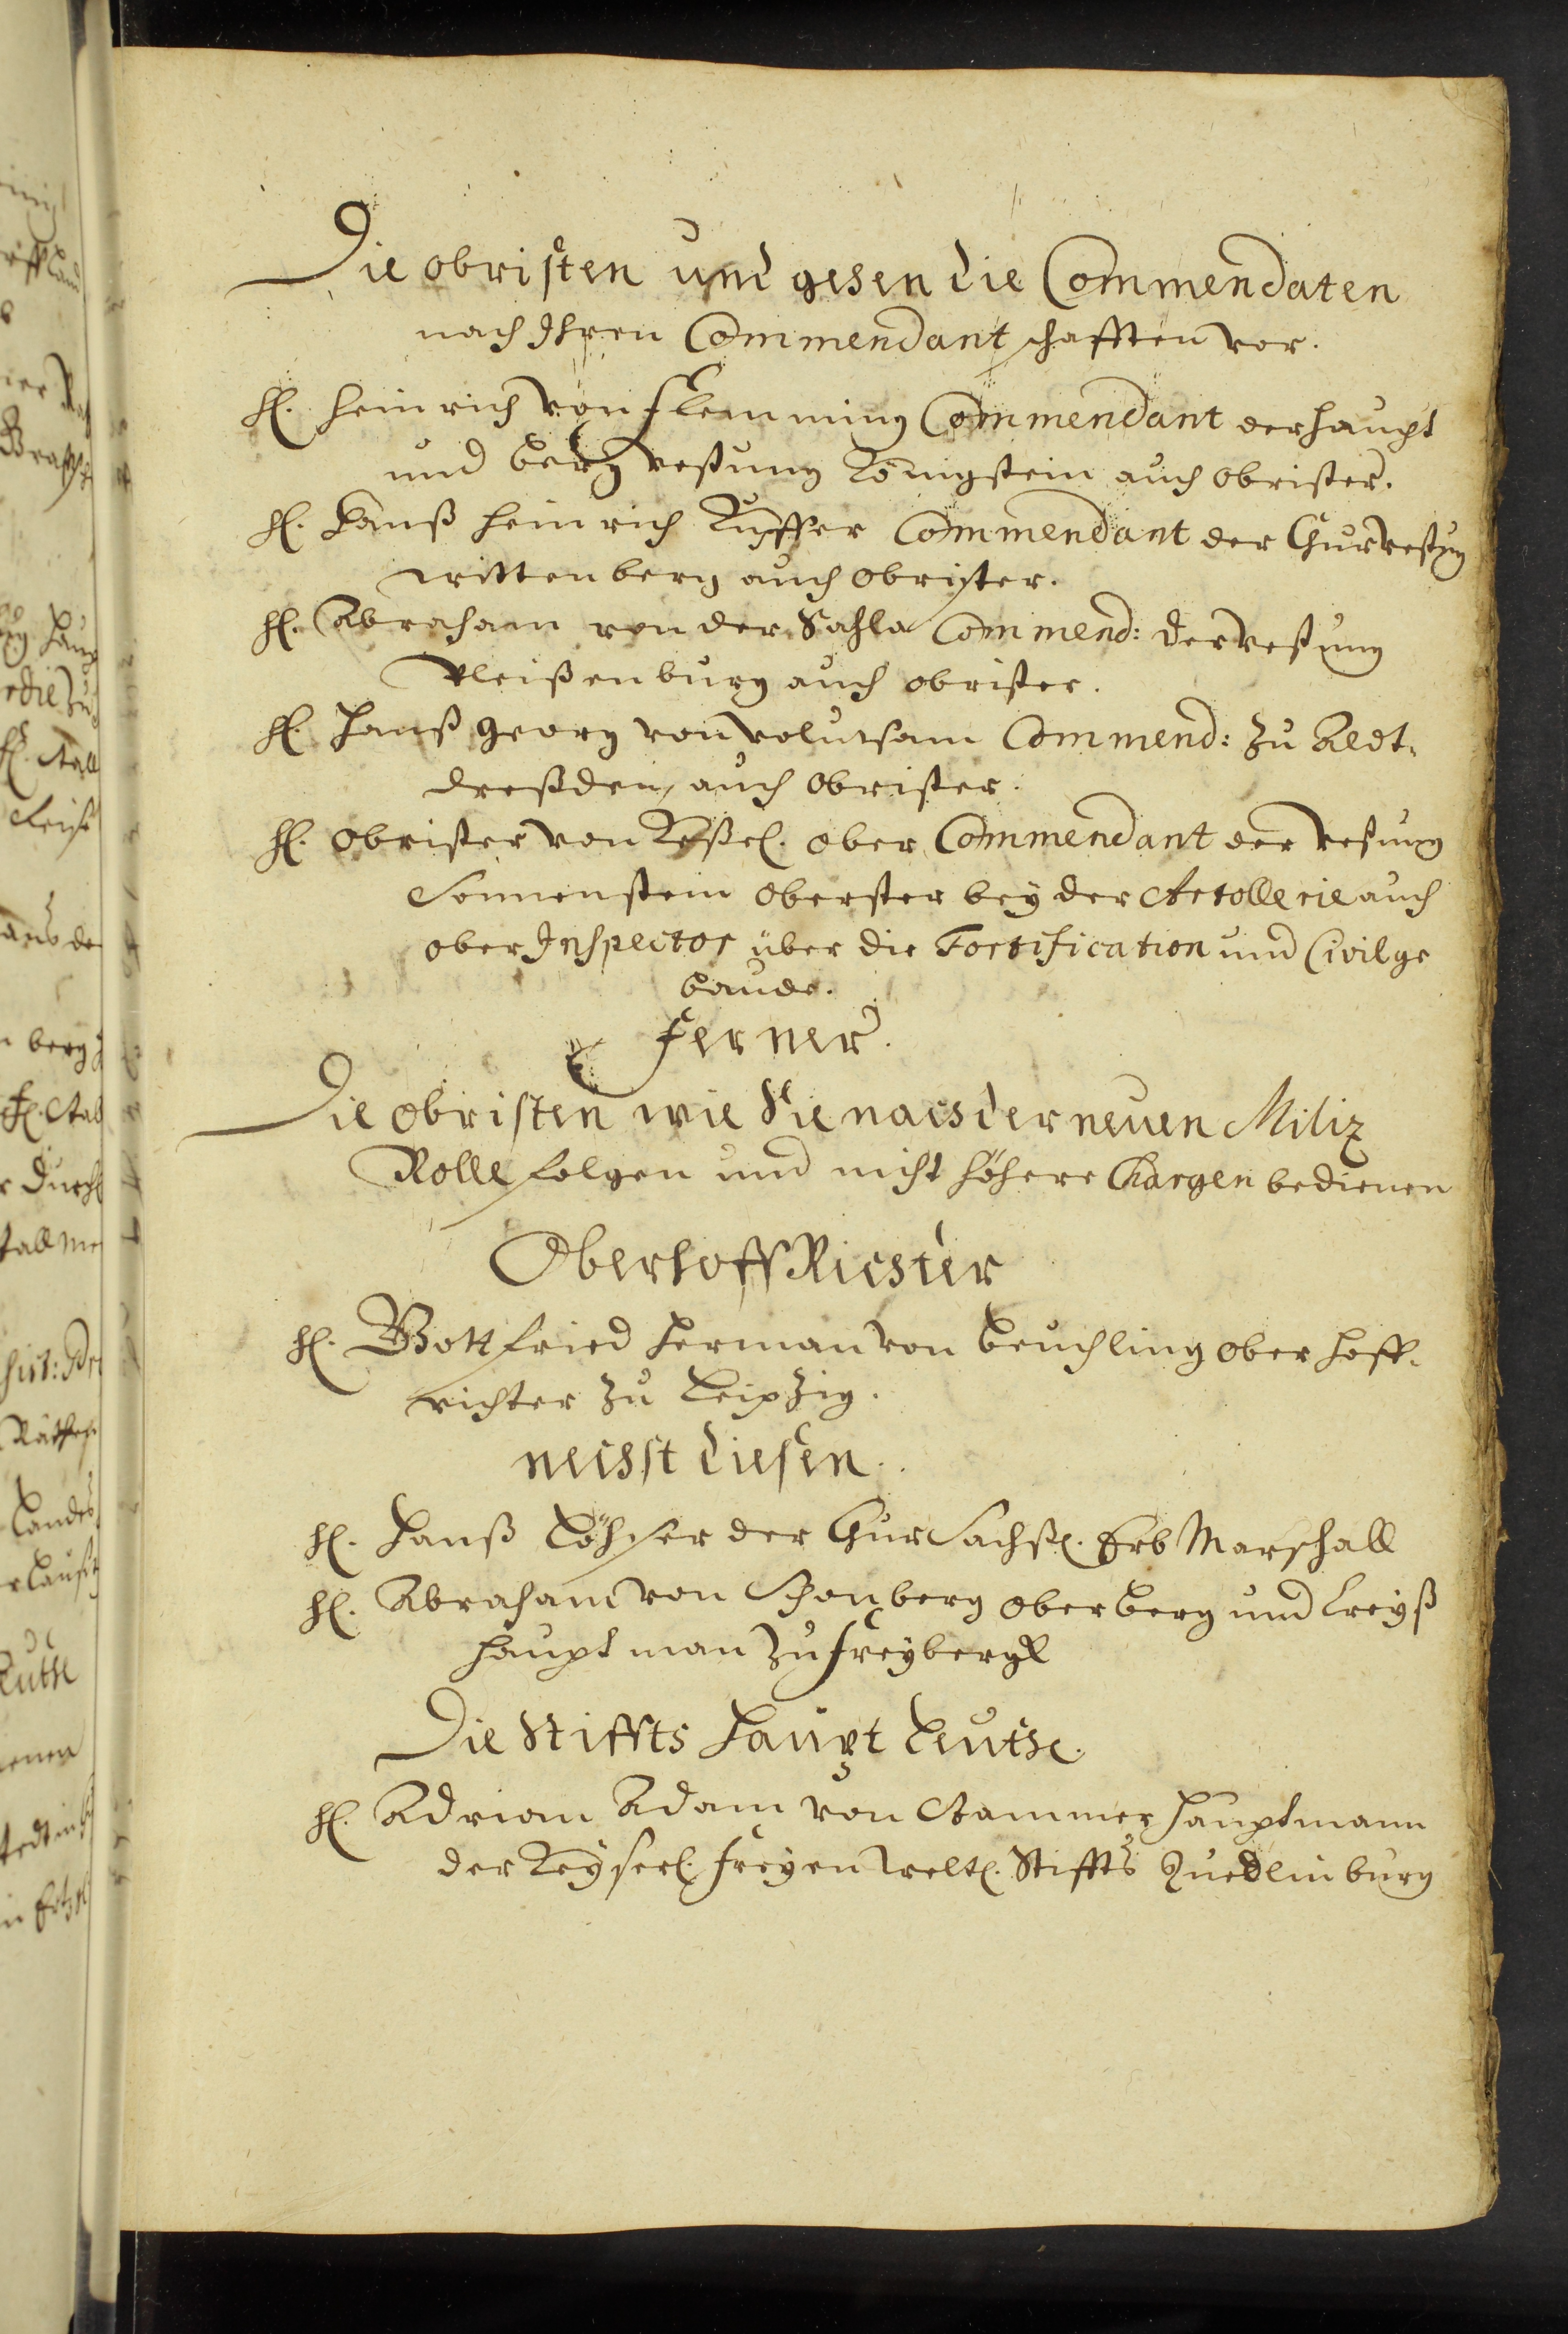 Die Obristen und gehen die Commendaten
nach Ihren Commendantschafften vor.
H. Heinrich von Flemming Commendant der Haupt
und Berg Vestung Königstein auch Obrister.
H. Hanß Heinrich Kuffer Commendant der Churvestung
Wittenberg auch Obrister.
H. Abraham von der Sahla Commend: der Vestung
Pleißenburg auch Obrister.
H. Hanß Georg von Commend: zu Aldt-
dreßden, auch Obrister.
H. Obrister von Keßel. Ober Commendant der Vestung
Sonnenstein Oberster bey der Artollerie auch
Ober Inspector über die Fortification und Civilge
baude.
Ferner.
Die Obristen wie Sie nach der neuen Miliz
Rolle folgen und nicht höhere Chargen bedienen
Oberhoff Richter
H. Gottfried Herman von Beuchling Ober Hoff-
richter zu Leipzig.
nechst diesen.
H. Hanß Löhser der Chur Sachß. Erb Marschall
H. Abraham von Schonberg Ober Berg und Creyß
Hauptman zu Freybergk
Die Stiffts Haupt Leuthe.
H. Adrian Adam von Stammer Hauptmann
der Keyserl. Freyen Weltl. Stiffts Quedlinburg